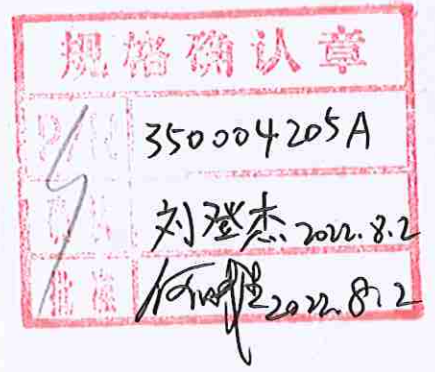 规格确认章
P/N 350004205A
刘登杰 2022.8.2
批准 2022.8.2